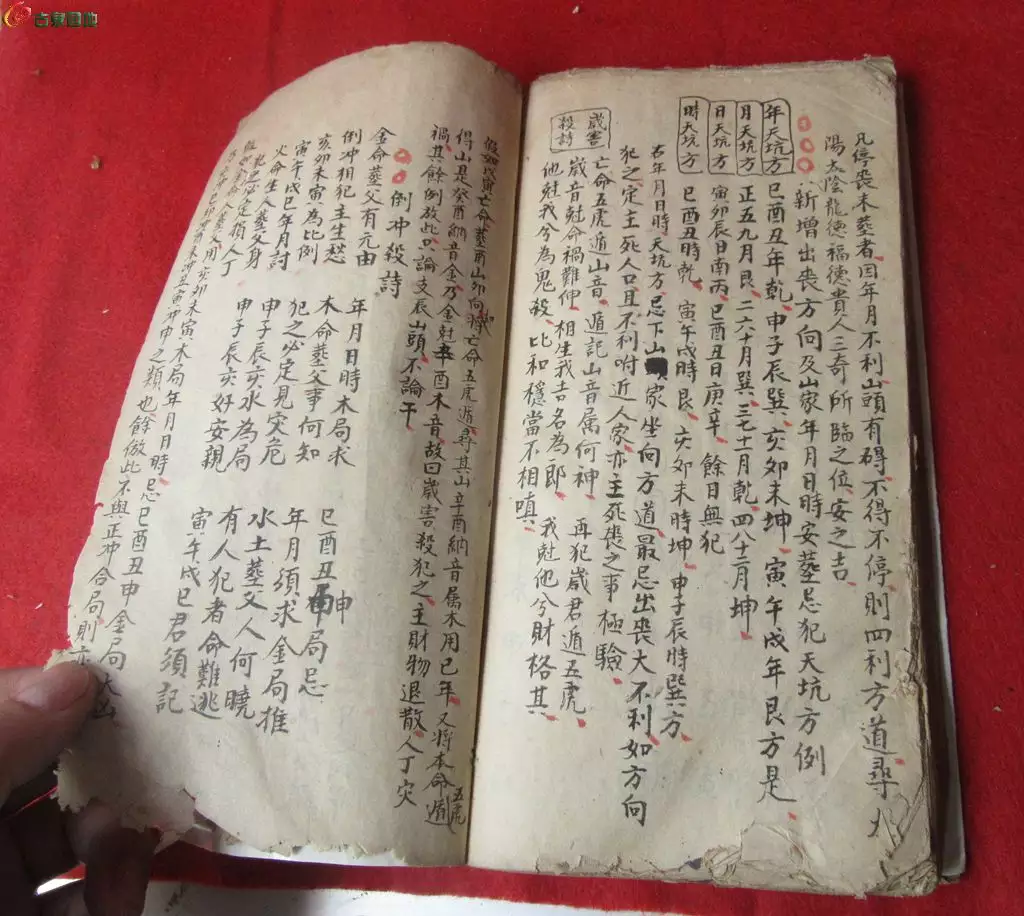 古泉園地
凡停喪未葬者因年月不利山頭有碍不得不停則四利方道尋
陽太陰龍德福德貴人三奇所臨之位安之吉
新增出喪方向及山家年月日時安葬忌犯天坑方例
年天坑方 巳酉丑年乾 申子辰巽 亥卯未坤 寅午戌年艮方是
月天坑方 正五九月艮 二六十月巽 三七十一月乾 四八十二月坤
日天坑方 寅卯辰日南丙 巳酉丑日庚辛 餘日無犯
時天坑方 巳酉丑時乾 寅午戌時艮 亥卯未時坤 申子辰時巽方
右年月日時天坑方忌下山家坐向方道最忌出喪大不利如方向
犯之定主死人口且不利附近人家亦主死喪之事極驗
歲害殺詩
亡命五虎遁山音 遁記山音属何神 再犯歲君遁五虎
歲音尅命禍難伸 相生我吉名為郎 我尅他兮財格其
他尅我兮為鬼殺 比和穩當不相嗔
假如戊寅亡命葬酉山卯向將亡命五虎遁尋其山辛酉納音属木用巳年又將本命遁五虎
得山是癸酉納音金乃金尅辛酉木音故曰歲害殺犯之主財物退散人丁災
禍其餘例放此只論支辰山頭不論干
倒冲殺詩
金命葬父有元由 年月日時木局求 巳酉丑申局忌
倒冲相犯主生愁 木命葬父事何知 年月須求金局推
亥卯未寅為比例 犯之必定見灾危 水土葬父人何曉
寅午戌巳年月討 申子辰亥水為局 有人犯者命難逃
火命生人葬父身 申子辰亥好安親 寅午戌巳君須記
犯之必定損人丁
假如金命人葬父用亥卯未寅木局年月日時忌巳酉丑申金局大凶
冲申之類也餘倣此不與正冲合局則亦